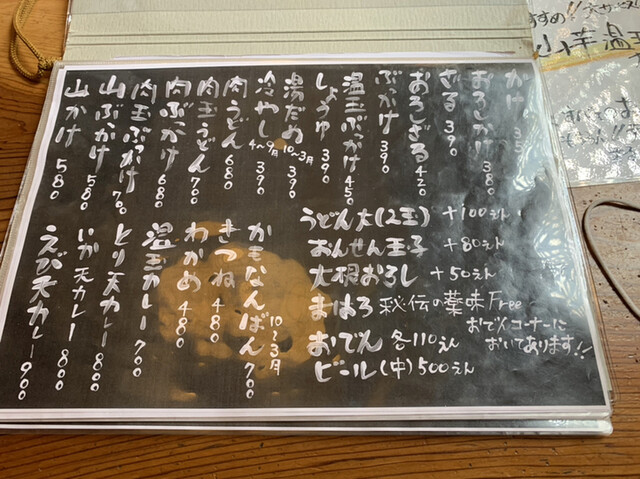 かけ 350
おろしかけ 380
ざる 390
おろしざる 420
ぶっかけ 390
温玉ぶっかけ 450
しょうゆ 390
湯だめ 10〜3月 390
冷やし 4〜9月 390
肉うどん 680
肉玉うどん 700
肉ぶっかけ 680
肉玉ぶっかけ 700
山ぶっかけ 580
山かけ 580
うどん大(2玉) +100えん
おんせん玉子 +80えん
大根おろし +50えん
まはろ 秘伝の薬味Free
おでんコーナーに
おいてあります!!
おでん 各110えん
ビール(中)500えん
かもなんばん 10〜3月 700
きつね 480
わかめ 480
温玉カレー 700
とり天カレー 800
いか天カレー 800
えび天カレー 900
すすめ!!
山芋温玉